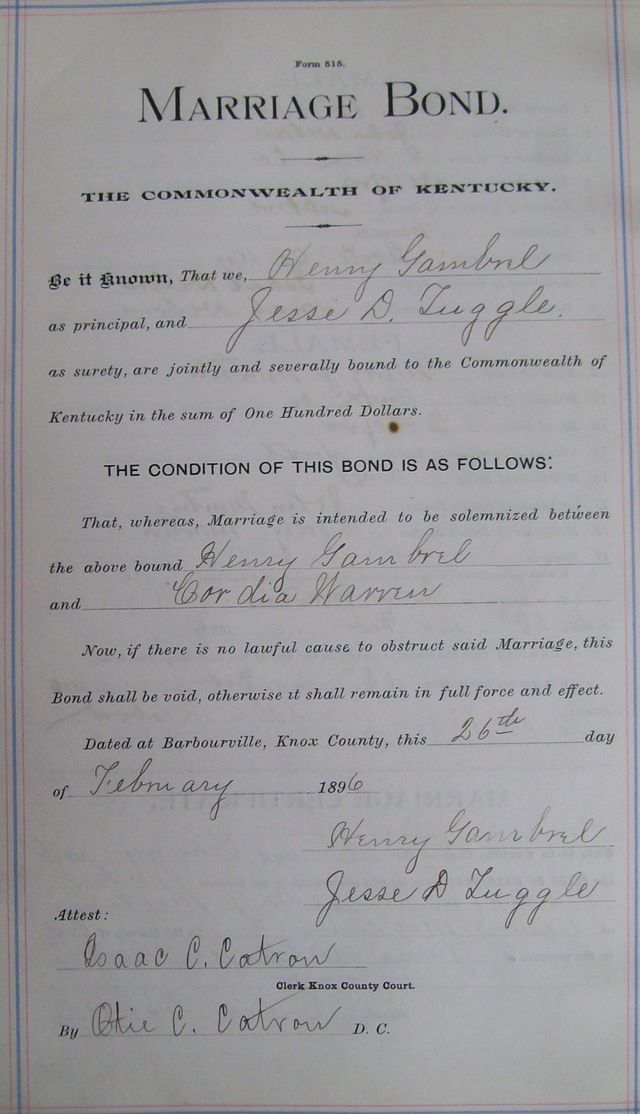 Form 515.
MARRIAGE BOND.
THE COMMONWEALTH OF KENTUCKY.
Be it Known, That we, Henry Gambrel
as principal, and Jesse D. Tuggle.
as surety, are jointly and severally bound to the Commonwealth of
Kentucky in the sum of One Hundred Dollars.
THE CONDITION OF THIS BOND IS AS FOLLOWS:
That, whereas, Marriage is intended to be solemnized between
the above bound Henry Gambrel
and Cordia Warren
Now, if there is no lawful cause to obstruct said Marriage, this
Bond shall be void, otherwise it shall remain in full force and effect.
Dated at Barbourville, Knox County, this 26th day
of February 1896
Henry Gambrel
Jesse D Tuggle
Attest:
Isaac C. Catron
Clerk Knox County Court.
By Otie C. Catron D. C.